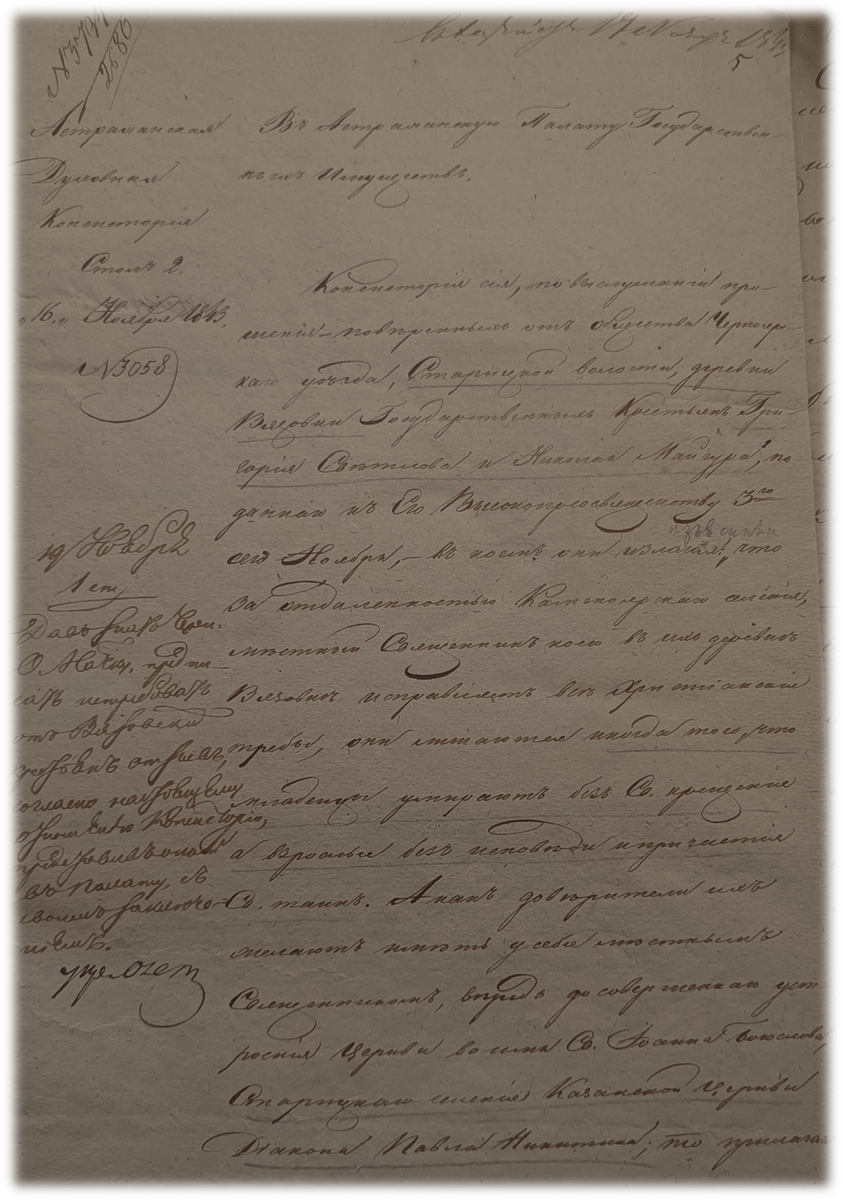 N 3737
2680
5
Астраханская
Духовная
Консисторія
Столъ 2.
"16" Ноября 1843.
N 3058
Въ Астраханскую Палату Государствен-
ныхъ Имуществъ.
Консисторія сія, по выслушаніи про-
шенія повѣренныхъ отъ общества Черноярс-
каго уѣзда, Старицкой волости, деревни
Вязовки Государственныхъ Крестьянъ Гри-
горія Свѣтлова и Николая Майгура, по
даннаго къ Его Высокопреосвященству 3го
сего Ноября, - въ коемъ они излагая, что
за отдаленностью Каменоярскаго селенія,
мѣстный Священникъ коего въ ихъ деревнѣ
Вязовкѣ исправляетъ всѣ Христіанскія
требы, они лишаются иногда того, что
младенцы умираютъ безъ Св. крещенія
а взрослые безъ исповѣди и причастія
Св. таинъ. А какъ довѣрители ихъ
желаютъ имѣть у себя мѣстнымъ
Священникомъ, впредь до совершеннаго уст
роенія Церкви во имя Св. Іоанна Богослова,
Старицкаго селенія Казанской Церкви
Діакона Павла Никитина; то прилагая
19 Ноября
1 ст
предпи-
сать истребовать
отъ Вязовскихъ
согласно настоящему
Консисторіи,
въ Палату, съ
своимъ заключе-
ніемъ.